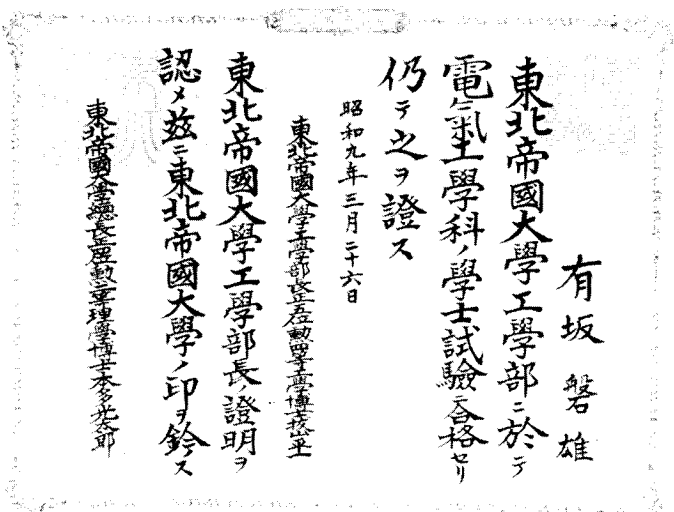 有坂磐雄
東北帝國大學工學部ニ於テ
電氣工學科ノ學士試驗ニ合格セリ
仍テ之ヲ證ス
昭和九年三月二十六日
東北帝國大學工學部長正五位勲四等工學博士抜山平一
東北帝國大學工學部長ノ證明ヲ
認メ茲ニ東北帝國大學ノ印ヲ鈐ス
東北帝國大學總長正三位勲一等理學博士本多光太郎